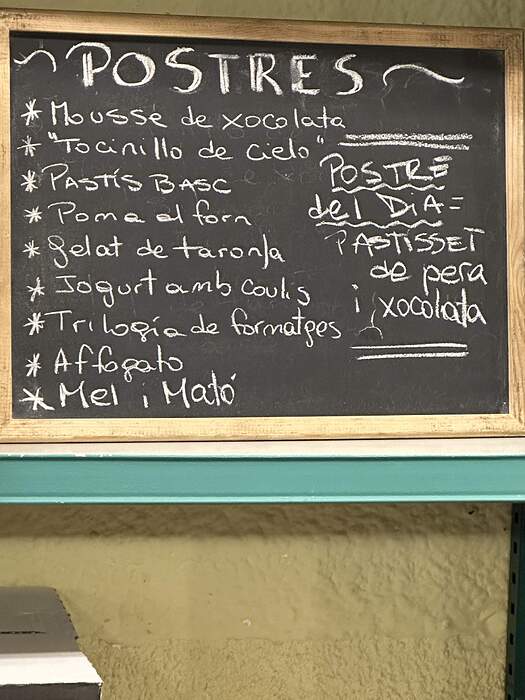 POSTRES
* Mousse de xocolata
* "Tocinillo de cielo"
* PASTÍS BASC
* Poma al forn
* gelat de taronja
* Iogurt amb coulis
* Trilogía de formatges
* Affogato
* Mel i Mató
POSTRE
del DIA =
PASTISSET
de pera
i xocolata